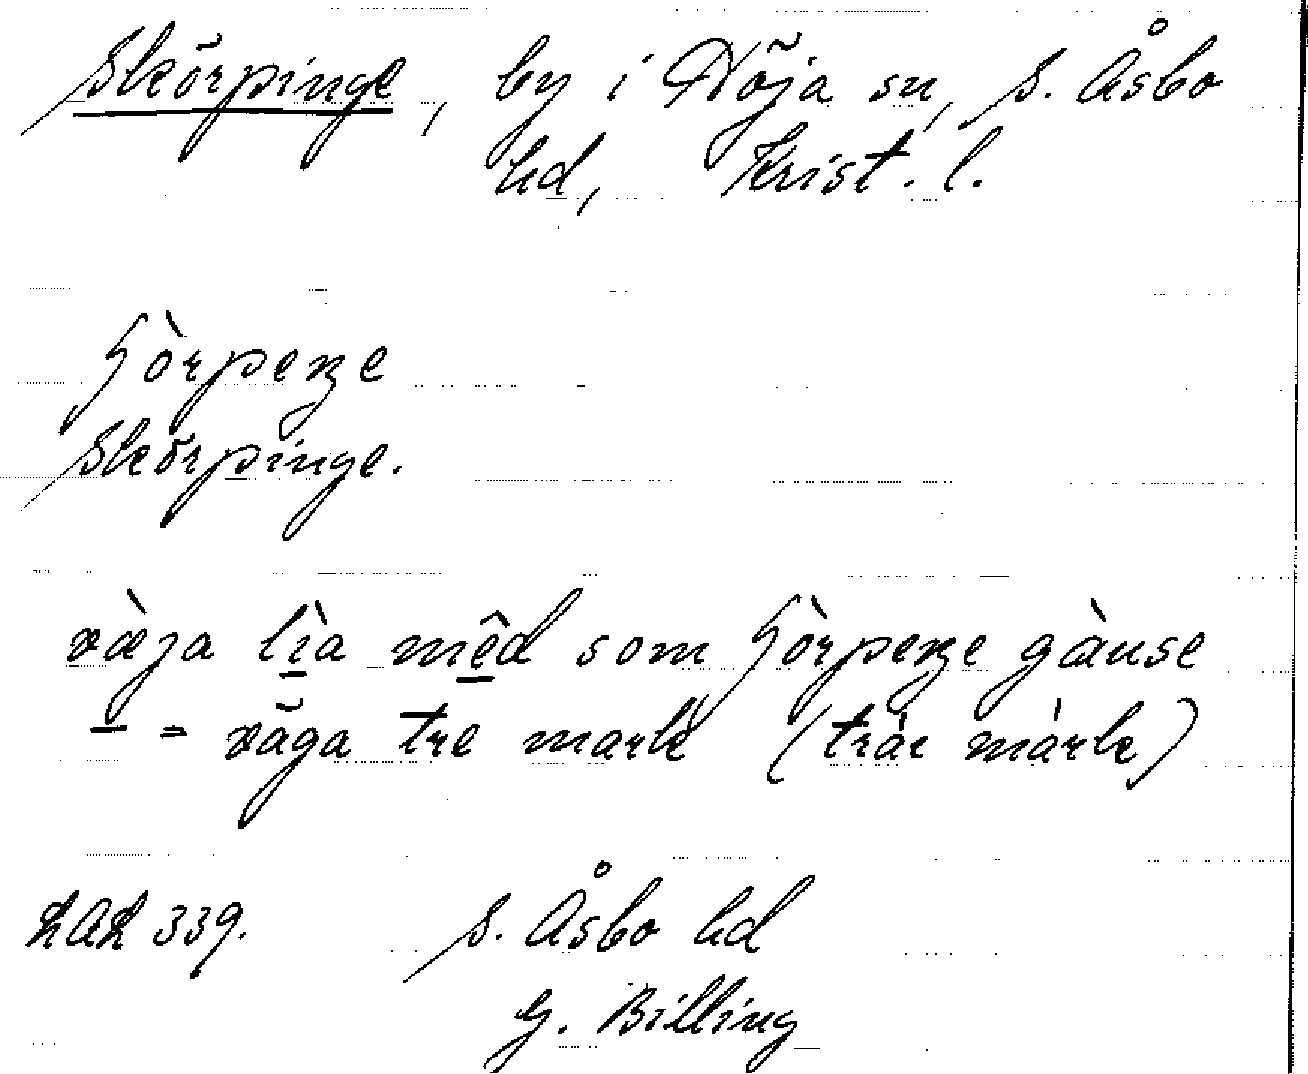 Skörpinge, by i Nöja sn, S. Åsbo
hd, Krist. l.
ʃɵ̀rpeŋe
Skörpinge.
væ̀ja lìa mêd som ʃɵ̀rpeŋe gàuse
– = väga tre mark (trǽ márk)
LAL 339. S. Åsbo hd
G. Billing